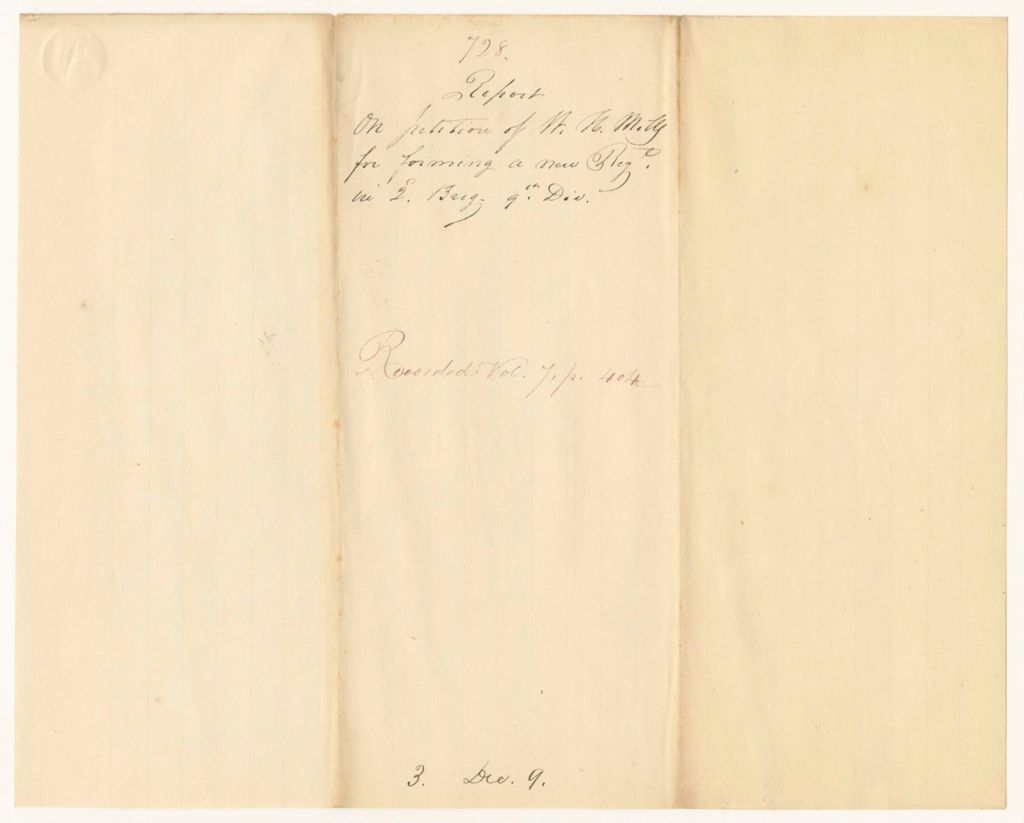 728.
Report
On petition of W. H. Mills
for forming a new Regt.
in 2. Brig. 9th Div.
Recorded Vol. 7, p. 404
3. Dec. 9.